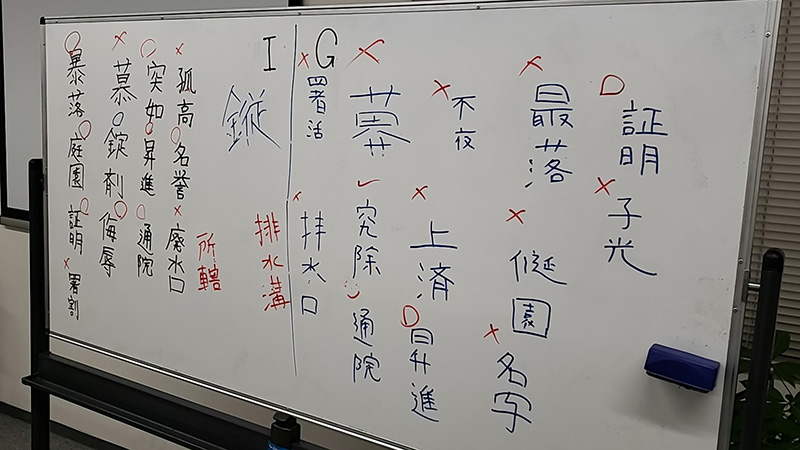 I
G
孤高
名誉
廃水口
突如
昇進
通院
慕
錠剤
侮辱
暴落
庭園
証明
署割
所轄
排水溝
証明
子光
最落
名字
不夜
上済
昇進
究除
通院